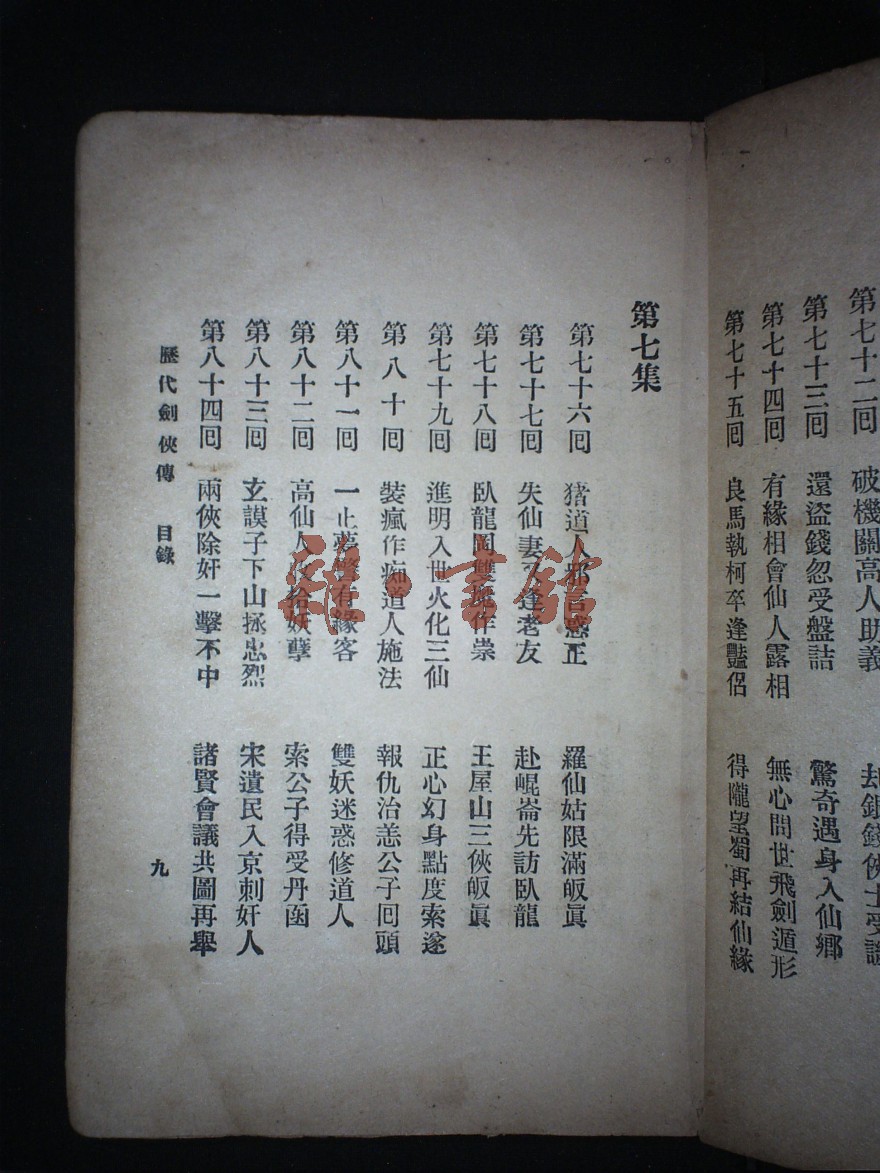 第七十二回　破機關高人助義　却銀錢俠士受
第七十三回　還盜錢忽受盤詰　驚奇遇身入仙鄉
第七十四回　有緣相會仙人露相　無心問世飛劍遁形
第七十五回　良馬執柯卒逢豔侶　得隴望蜀再結仙緣
第七集
第七十六回　豬道人邪言惑正　羅仙姑限滿皈眞
第七十七回　失仙妻又逢老友　赴崐崙先訪臥龍
第七十八回　臥龍岡雙操作祟　王屋山三俠皈眞
第七十九回　進明入世火化三仙　正心幻身點度索遂
第八十回　裝瘋作痴道人施法　報仇治恙公子回頭
第八十一回　一止夢警有緣客　雙妖迷惑修道人
第八十二回　高仙人收拾妖孽　索公子得受丹函
第八十三回　玄謨子下山拯忠烈　宋遺民入京刺奸人
第八十四回　兩俠除奸一擊不中　諸賢會議共圖再舉
歷代劍俠傳　目錄　九
雜·書館